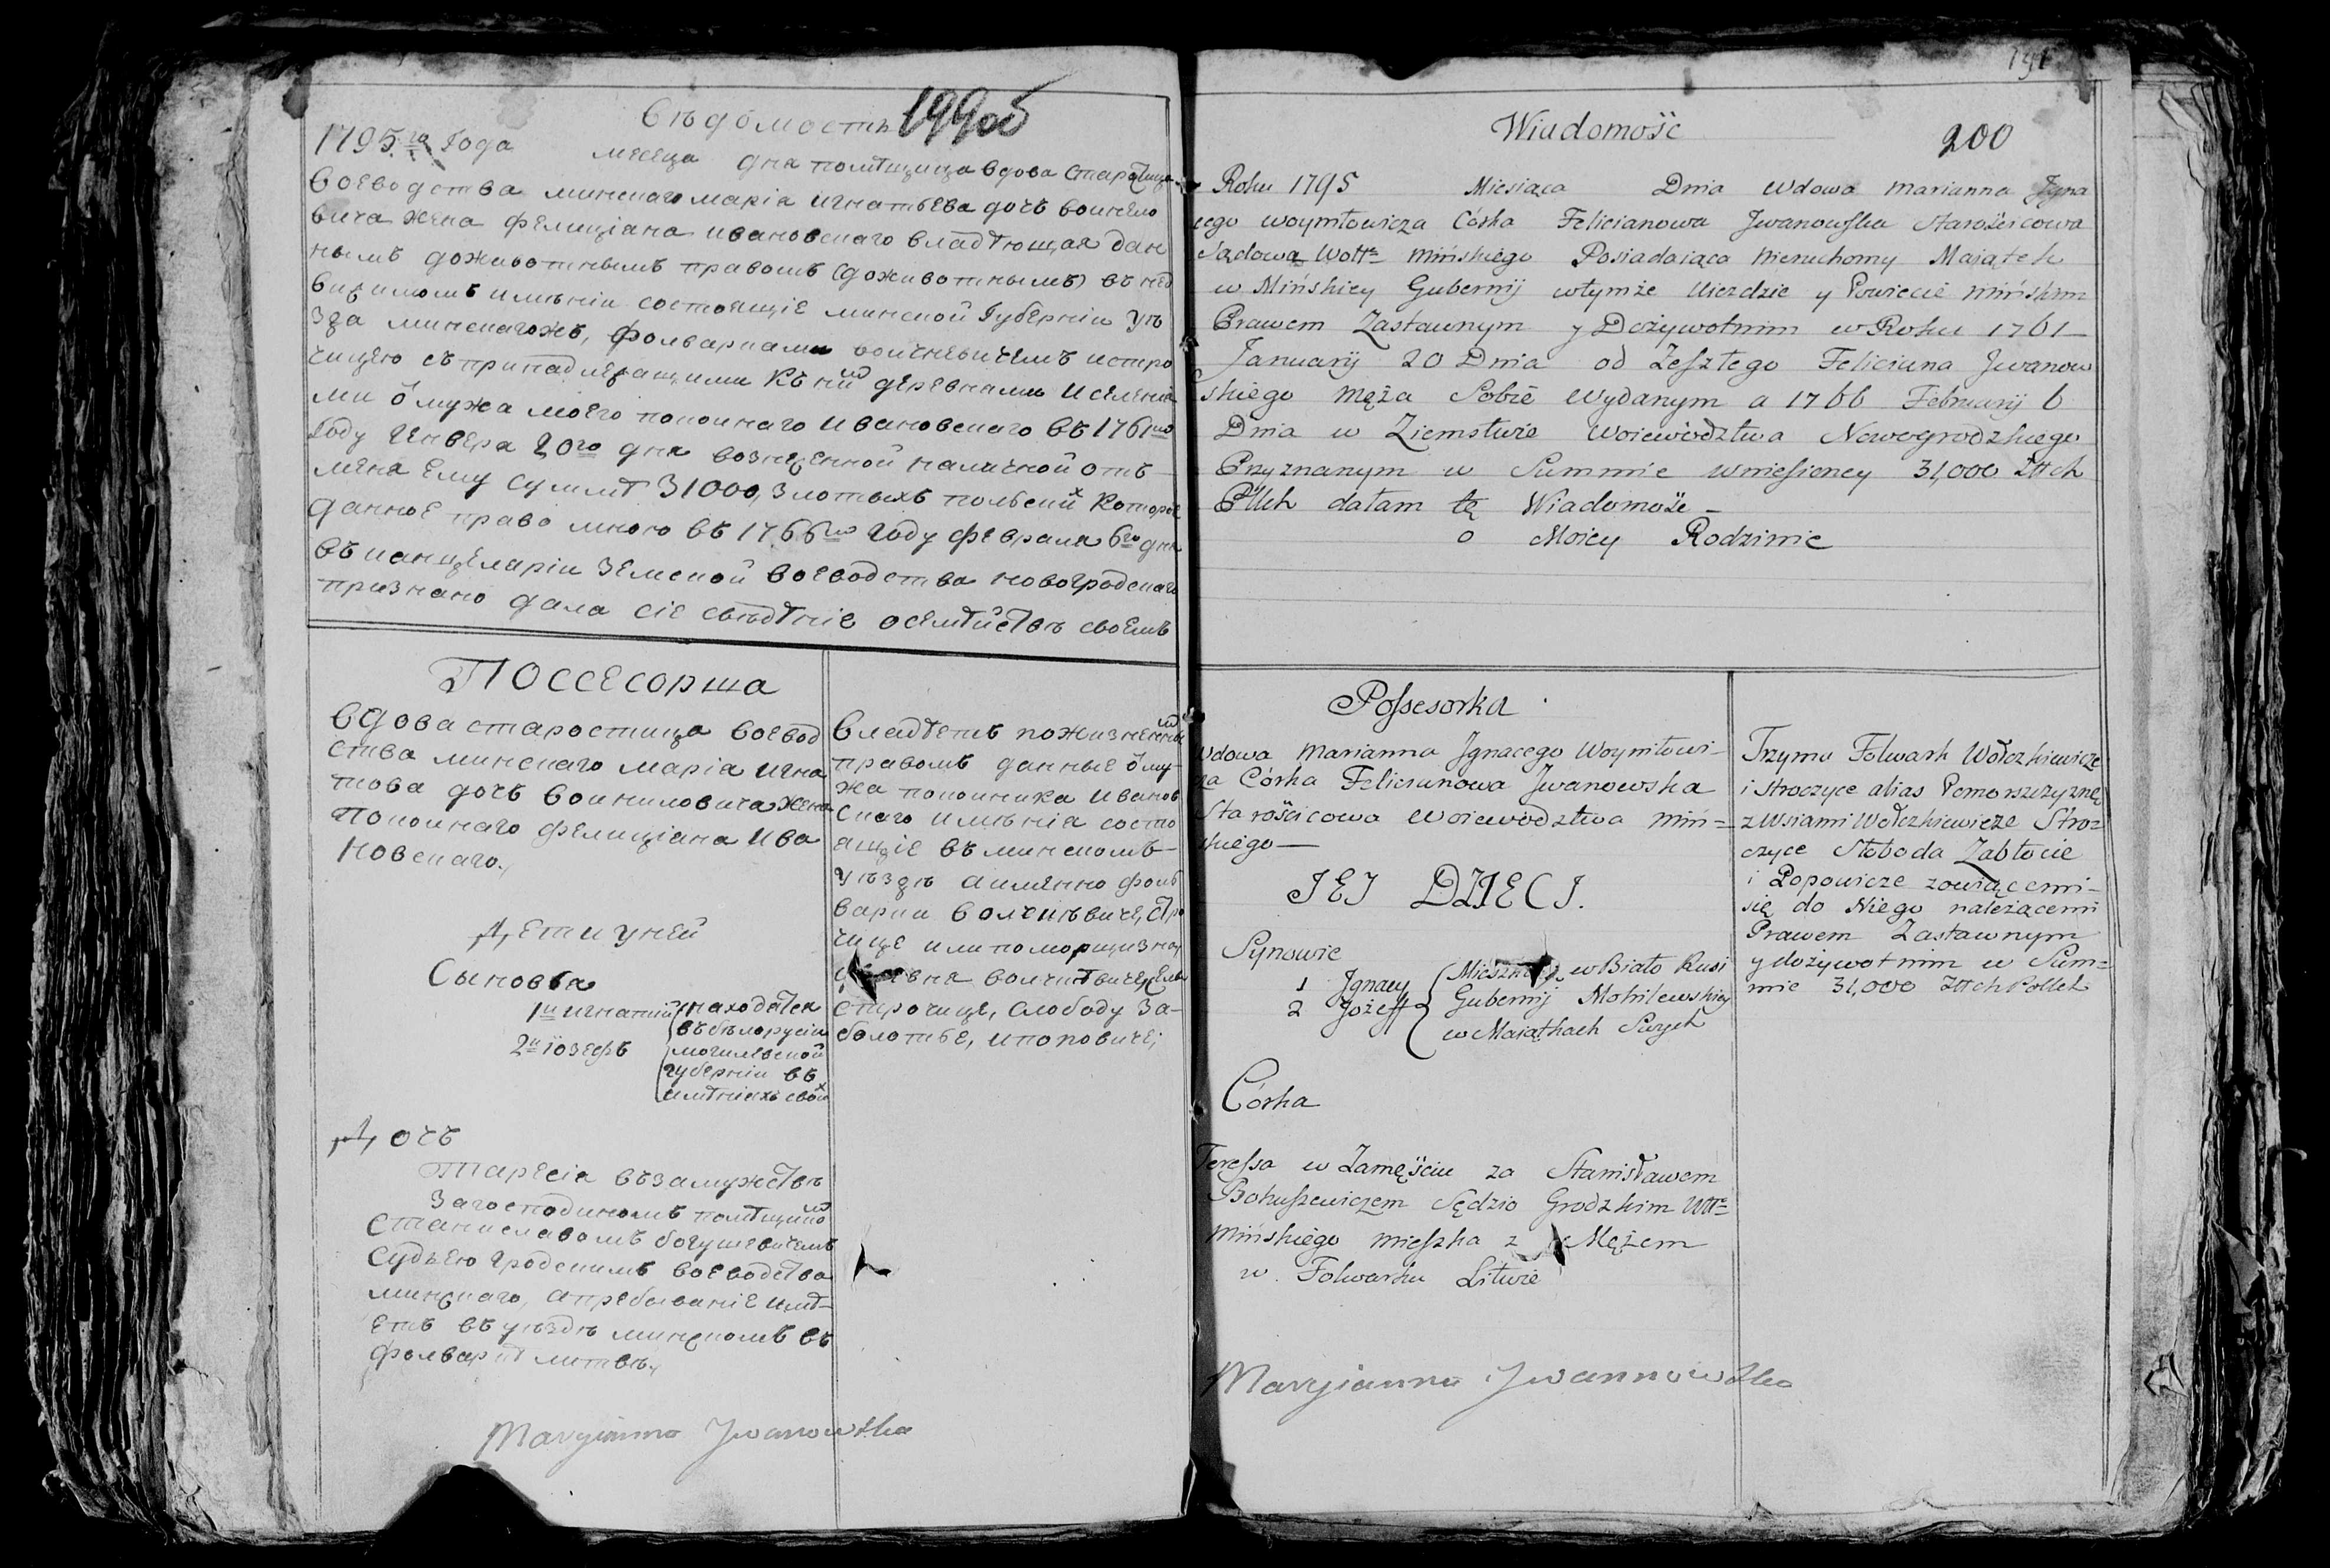 Вѣдомость 199об
1795го Года месеца дня помѣщица вдова Старостица
воеводства минскаго марiя игнатьева дочъ воинило
вича жена фелициана ивановскаго владѣющая дан
нымъ доживотнымъ правомъ (доживотнымъ) въ нед
вижимомъ имѣнiи состоящiе минской Губернiи уѣ
зда минскагожъ, фольварками волчкевичемъ истро
чицею съ принадлежащими къ ним деревнами и селенiя
ми ѿ мужа моего покоинаго ивановскаго въ 1761мъ
году Генвера 20го дня возиценной наличной отъ
меня ему суммѣ 31000, злотыхъ польских которое
данное право мною въ 1766мъ году февраля 6го дня
въ канцеларiи земской воеводства новогродскаго
признано дала сiе свѣдѣнiе осемѣйствѣ своемъ
Поссесорша
вдова старостица воевод
ства минскаго марiа игна
това дочъ воиниловича жена
покоинаго фелициана ива
новскаго.
Дети унеи
Сыновья
1й игнатий находатся
въ бѣлоруссiи
2й iозефъ могилевской
губернiи въ
имѣнiяхъ своих
Дочъ
Тересiя въ замужствѣ
Загосподиномъ помѣщиком
Станиславомъ богушевичемъ
Судьею гродскимъ воеводства
минскаго, апребыванiе имѣ-
етъ въ уѣздѣ минскомъ въ
фольваркѣ литвѣ,
владѣетъ пожизненным
правомъ данные ѿ му-
жа покоиника иванов
скаго имѣнiя состо
ящiе въ минскомъ
уѣздѣ аименно фоль
варки волчкѣвиче, стро
чице или поморщизна
деревня волчкѣвиче,
строчице, слободу за-
болотье, ипоповиче;
Maryianna Jwanowska
191
Wiadomość 200
Roku 1795 Miesiąca Dnia wdowa Marianna Jgna
cego woyniłowicza Córka Felicianowa Jwanowska Starościcowa
Sądowa Wottª Mińskiego Posiadaiąca Nieruchomy Maiątek
w Mińskiey Gubernij wtymże Uiezdzie y Powiecie Mińskim
Prawem Zastawnym y Dożywotnim w Roku 1761
Januarij 20 Dnia od Zeszłego Feliciana Jwanow
skiego Męża Sobie Wydanym a 1766 Februarij 6
Dnia w Ziemstwie Woiewodztwa Nowogrodzkiego
Przyznanym w Summie wniesioney 31,000 Złłch
Pllch dałam tę Wiadomość
o Moiey Rodzinie
Possesorka
wdowa Marianna Jgnacego Woyniłowi-
za Córka Felicianowa Jwanowska
Starościcowa Woiewodztwa Miń=
skiego
JEJ DZIECI.
Synowie
1 Jgnacy Mieszkaią w Biało Rusi
2 Józeff Gubernij Mohilewskiey
w Maiątkach Swych
Córka
Teressa w Zamęściu za Stanisławem
Bohuszewiczem Sędzio Grodzkim Wttª
Mińskiego Mieszka z Mężem
w Folwarku Litwie
Trzyma Folwark Wołczkiewicze
i Stroczyce alias Pomorszczyznę
z Wsiami Wołczkiewicze Stro=
czyce Słoboda Zabłocie
i Popowicze zowiącemi-
się do Niego należącemi
Prawem Zastawnym
y dożywotnim w Sum=
mie 31,000 Złłch Pollch
Maryianna Jwannowska